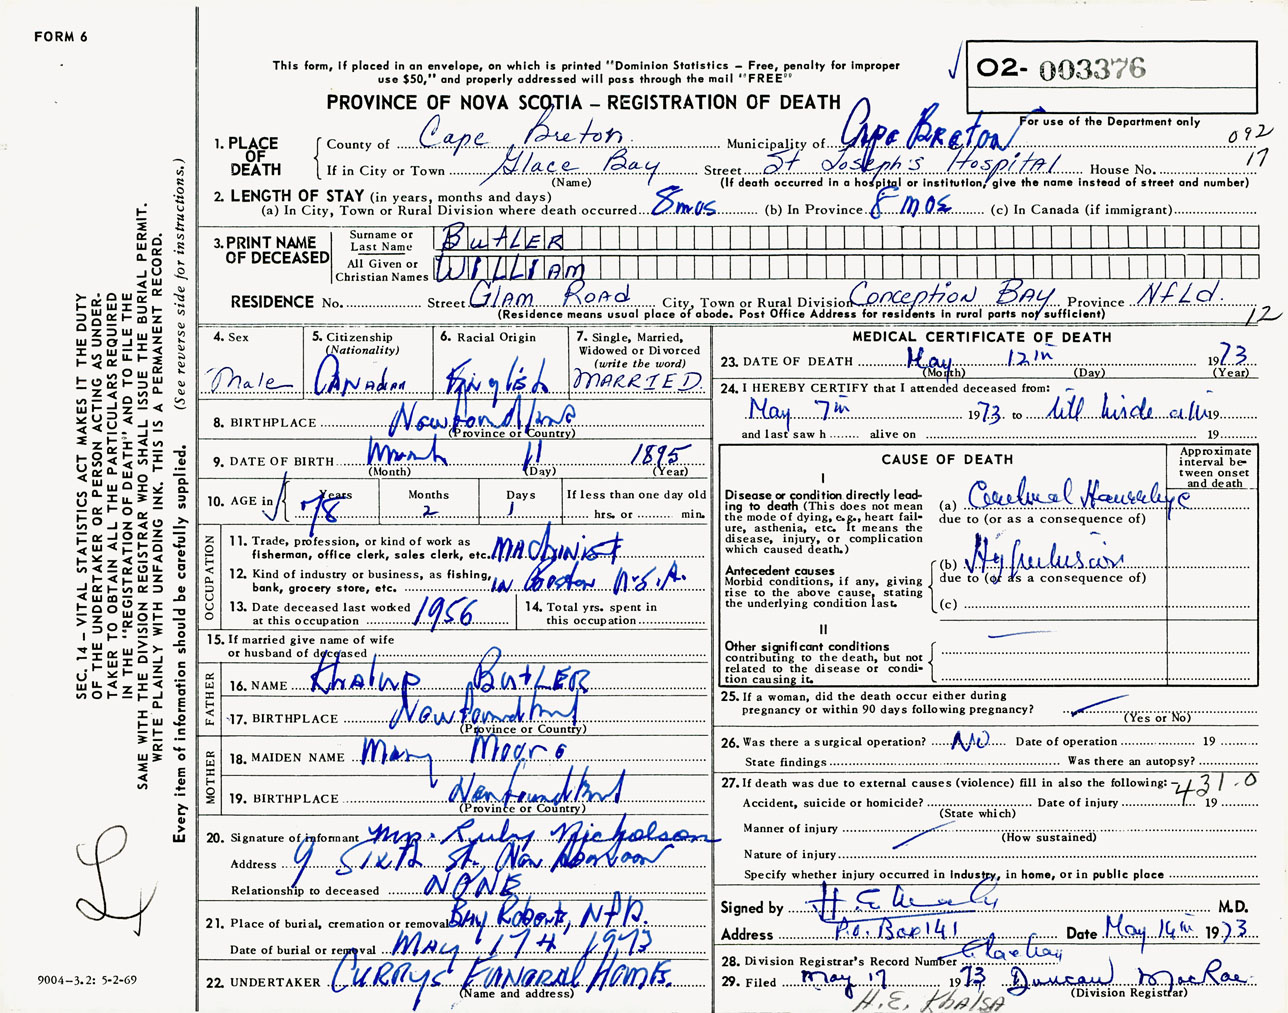 FORM 6
This form, if placed in an envelope, on which is printed "Dominion Statistics – Free, penalty for improper
use $50," and properly addressed will pass through the mail "FREE"
O2- 003376
For use of the Department only
PROVINCE OF NOVA SCOTIA – REGISTRATION OF DEATH
092
17
1. PLACE OF DEATH
County of Cape Breton Municipality of Cape Breton
If in City or Town Glace Bay Street St Joseph's Hospital House No.
(Name) (If death occurred in a hospital or institution, give the name instead of street and number)
2. LENGTH OF STAY (in years, months and days)
(a) In City, Town or Rural Division where death occurred 8 mos (b) In Province 8 mos (c) In Canada (if immigrant)
3. PRINT NAME OF DECEASED
Surname or Last Name BUTLER
All Given or Christian Names WILLIAM
RESIDENCE No. Street Glam Road City, Town or Rural Division Conception Bay Province Nfld.
(Residence means usual place of abode. Post Office Address for residents in rural parts not sufficient)
12
4. Sex Male
5. Citizenship (Nationality) Canadian
6. Racial Origin English
7. Single, Married, Widowed or Divorced (write the word) MARRIED
8. BIRTHPLACE Newfoundland
(Province or Country)
9. DATE OF BIRTH March 11 1895
(Month) (Day) (Year)
10. AGE in Years 78 Months 2 Days 1 If less than one day old hrs. or min.
OCCUPATION
11. Trade, profession, or kind of work as fisherman, office clerk, sales clerk, etc. Machinist
12. Kind of industry or business, as fishing, bank, grocery store, etc. in Boston U.S.A.
13. Date deceased last worked at this occupation 1956
14. Total yrs. spent in this occupation
15. If married give name of wife or husband of deceased
FATHER
16. NAME BUTLER
17. BIRTHPLACE Newfoundland
(Province or Country)
MOTHER
18. MAIDEN NAME Mary Moore
19. BIRTHPLACE Newfoundland
(Province or Country)
20. Signature of informant Mrs. Ruby Nicholson
Address 9 Sixth St. New Aberdeen
Relationship to deceased NONE
21. Place of burial, cremation or removal Bay Roberts, Nfld.
Date of burial or removal May 17th 1973
22. UNDERTAKER Currys Funeral Home.
(Name and address)
MEDICAL CERTIFICATE OF DEATH
23. DATE OF DEATH May 12th 1973
(Month) (Day) (Year)
24. I HEREBY CERTIFY that I attended deceased from:
May 7th 1973 to till 19
and last saw h alive on 19
CAUSE OF DEATH
Approximate interval between onset and death
I
Disease or condition directly leading to death (This does not mean the mode of dying, e.g., heart failure, asthenia, etc. It means the disease, injury, or complication which caused death.)
(a) Cerebral Haemorrhage
due to (or as a consequence of)
Antecedent causes
Morbid conditions, if any, giving rise to the above cause, stating the underlying condition last.
(b) Hypertension
due to (or as a consequence of)
(c)
II
Other significant conditions
contributing to the death, but not related to the disease or condition causing it.
25. If a woman, did the death occur either during pregnancy or within 90 days following pregnancy?
(Yes or No)
26. Was there a surgical operation? No Date of operation 19
State findings Was there an autopsy?
27. If death was due to external causes (violence) fill in also the following:
431.0
Accident, suicide or homicide? Date of injury 19
(State which)
Manner of injury
(How sustained)
Nature of injury
Specify whether injury occurred in Industry, in home, or in public place
Signed by M.D.
Address P.O. Box 141 Date May 14th 1973
Glace Bay
28. Division Registrar's Record Number
29. Filed May 17 1973 Duncan MacRae
(Division Registrar)
H.E. KHALSA
SEC. 14 – VITAL STATISTICS ACT MAKES IT THE DUTY
OF THE UNDERTAKER OR PERSON ACTING AS UNDER-
TAKER TO OBTAIN ALL THE PARTICULARS REQUIRED
IN THE "REGISTRATION OF DEATH" AND TO FILE THE
SAME WITH THE DIVISION REGISTRAR WHO SHALL ISSUE THE BURIAL PERMIT.
WRITE PLAINLY WITH UNFADING INK. THIS IS A PERMANENT RECORD.
Every item of information should be carefully supplied. (See reverse side for instructions.)
9004–3.2: 5-2-69